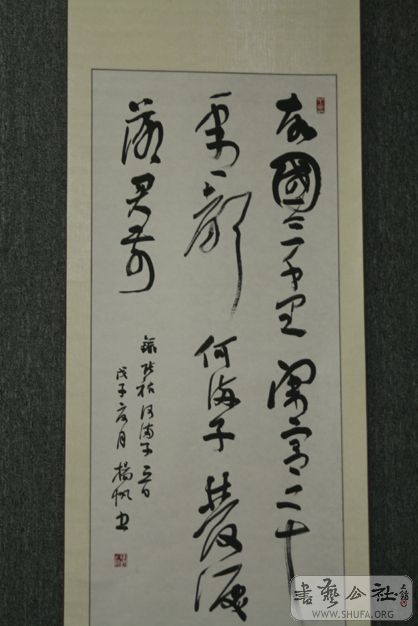 故國三千里深宮二十
年一聲何滿子雙淚
落君前
張祜何滿子
戊子夏月楊帆書
書藝公社
WWW.SHUFA.ORG